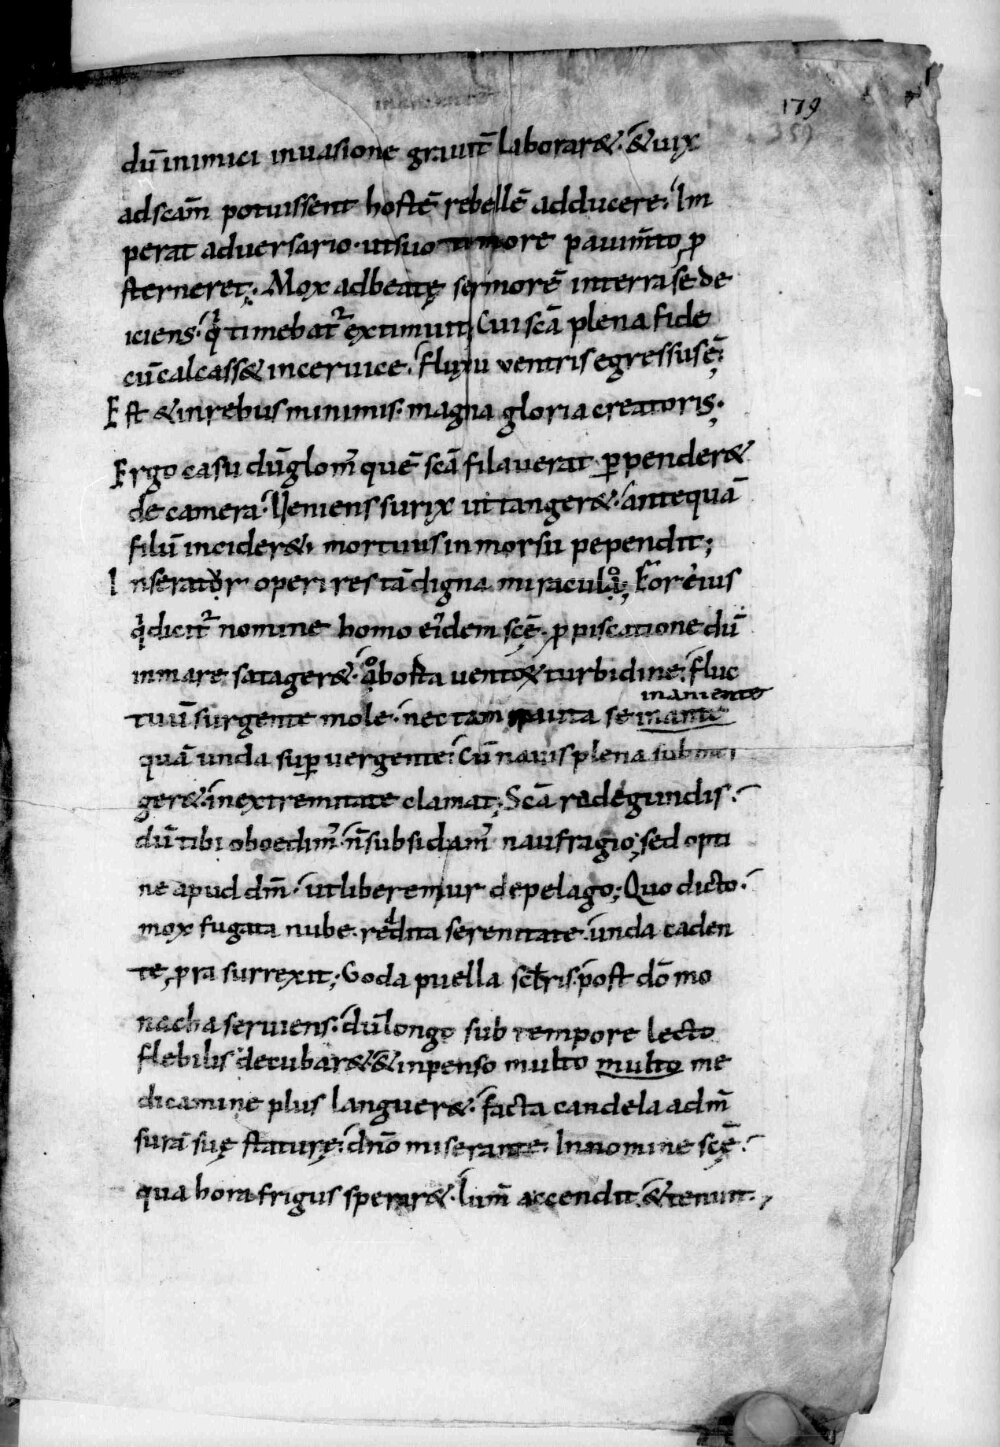 179
359
dū inimici inuasione grauit̄ laborar&. & uix
ad scām potuissent hostē rebellē adducere. Im
perat aduersario. ut suo timore pauim̄to p̄
sterneret; Mox ad beatę sermorē in terra se de
iciens. qͥ timebat᷑ extimuit; Cui scā plena fide
cū calcass& in ceruice. fluxu uentris egressus ē;
Est & in rebus minimis. magna gloria creatoris;
Ergo casu dū glom̄ quē scā filauerat ꝑpender&
de camera. Veniens surix ut tanger&. antequā
filū incider&. mortuus in morsu pependit;
Inserator operi res tā digna miraculo; Florēius
qͥ dicit᷑ nomine homo eīdem scę. p piscatione dū
in mare satager&. aborta uento & turbidine. fluc
inaniente
tuū surgente mole. nec tam pauta se inante
quā unda suꝑuergente. Cū nauis plena submer
ger&. in extremitate clamat; Scā radegundis.
dū tibi oboedim̄. n̄ subsidam̄ naufragio; sed opti
ne apud dm̄. ut liberemur de pelago; Quo dicto.
mox fugata nube. reddita serenitate. unda caden
te, pra surrexit; Goda puella sclāris. post dō mo
nacha seruiens. dū longo sub tempore lecto
flebilis decubar& & inpenso multo multo me
dicamine plus languer&. facta candela ad m̄
surā suę staturę. dn̄o miserante. In nomine scę.
qua hora frigus sperar&. lum̄ accendit. & tenuit.,